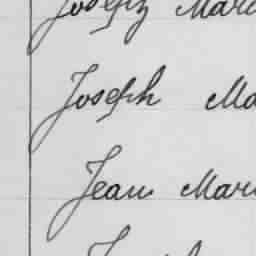 Joseph Mar
Joseph Ma
Jean Mar